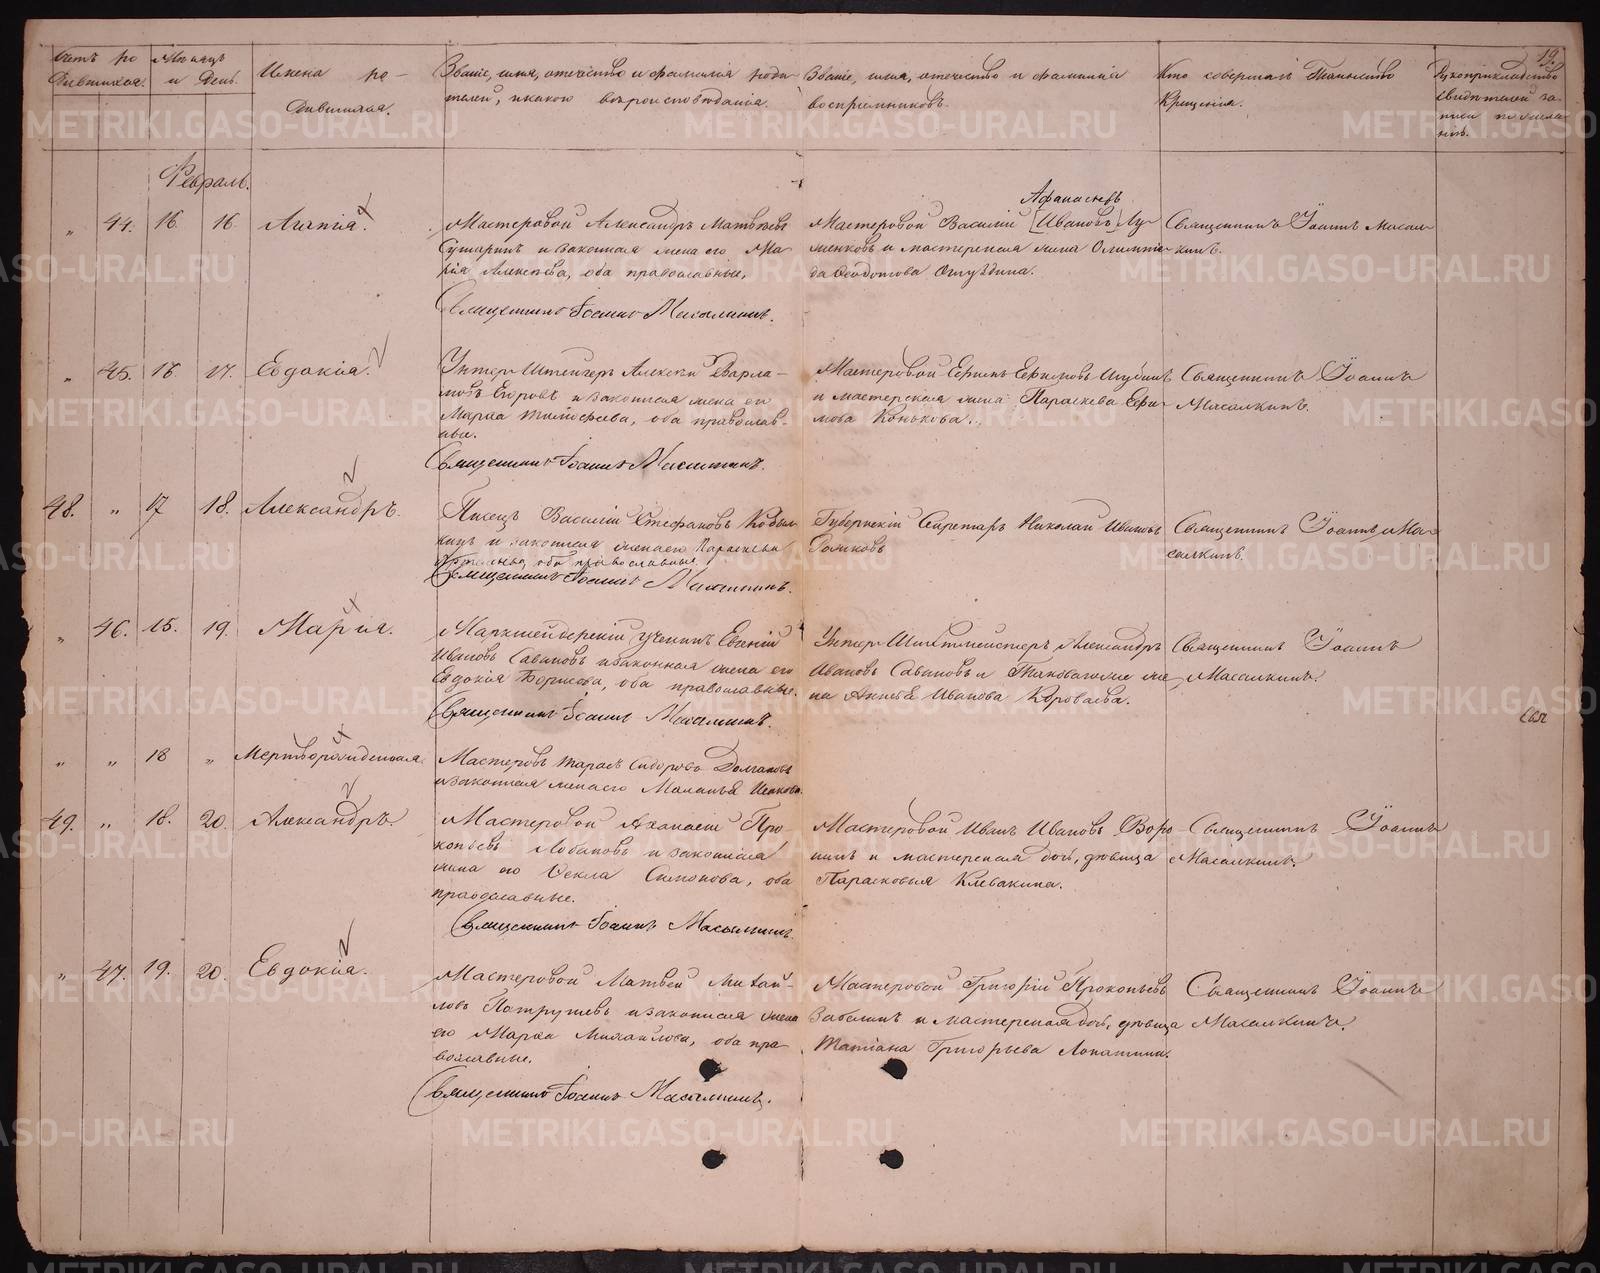 19.
Счетъ ро
дившихся.
Мѣсяцъ
и День.
Имена ро-
дившихся.
Званіе, имя, отечество и фамилія роди-
телей, и какого вѣроисповѣданія.
Званіе, имя, отечество и фамилія
воспріемниковъ.
Кто совершалъ Таинство
Крещенія.
Рукоприкладство
свидѣтелей за-
писи по жела-
нію.
Февраль.
" 44. 16. 16. Агапія.
Мастеровой Александръ Матвѣевъ
Сушаринъ и законная жена его Ма-
рія Алексѣева, оба православные,
Священникъ Іоаннъ Масалкинъ.
Афанасьевъ
Мастеровой Василій [Ивановъ]
и мастерская жена Олимпіа-
да Ѳеодотова
Священникъ Іоаннъ Масал-
кинъ.
" 45. 16. 17. Евдокія.
Унтеръ Штейгеръ Алексѣй Варла-
мовъ Егоровъ и законная жена его
Марѳа Тимофеева, оба православ-
ные.
Священникъ Іоаннъ Масалкинъ.
Мастеровой Ефимъ Ефимовъ
и мастерская жена Параскева Ефи-
мова Конькова.
Священникъ Іоаннъ
Масалкинъ.
48. " 17 18. Александръ.
Писецъ Василій Стефановъ
и законная жена его Параскева
оба православные.
Священникъ Іоаннъ Масалкинъ.
Губернскій Секретарь Николай Ивановъ
Священникъ Іоаннъ Ма-
салкинъ.
" 46. 15. 19. Марія.
Маркшейдерскій ученикъ Евгеній
Ивановъ Савановъ и законная жена его
Евдокія Борисова, оба православные.
Священникъ Іоаннъ Масалкинъ.
Унтеръ Шихтмейстеръ Александръ
Ивановъ Савановъ и же-
на Ивановна Короваева.
Священникъ Іоаннъ
Масалкинъ.
" " 18 " Мертворожденная.
Мастеровъ Тарасъ Сидоровъ Долгановъ
и законная жена его Маланья
49. " 18. 20. Александръ.
Мастеровой Аѳанасій Про-
копьевъ Лобановъ и законная
жена его Ѳекла Симонова, оба
православные.
Священникъ Іоаннъ Масалкинъ.
Мастеровой Иванъ Ивановъ Воро-
нинъ и мастерская дочь, дѣвица
Парасковья Клевакина.
Священникъ Іоаннъ
Масалкинъ.
" 47. 19. 20. Евдокія.
Мастеровой Матвей Михай-
ловъ Патрушевъ и законная жена
его Марѳа Михайлова, оба пра-
вославные.
Священникъ Іоаннъ Масалкинъ.
Мастеровой Григорій Прокопьевъ
Забелинъ и мастерская дочь, дѣвица
Татіана Григорьева Лопатина.
Священникъ Іоаннъ
Масалкинъ.
METRIKI.GASO-URAL.RU